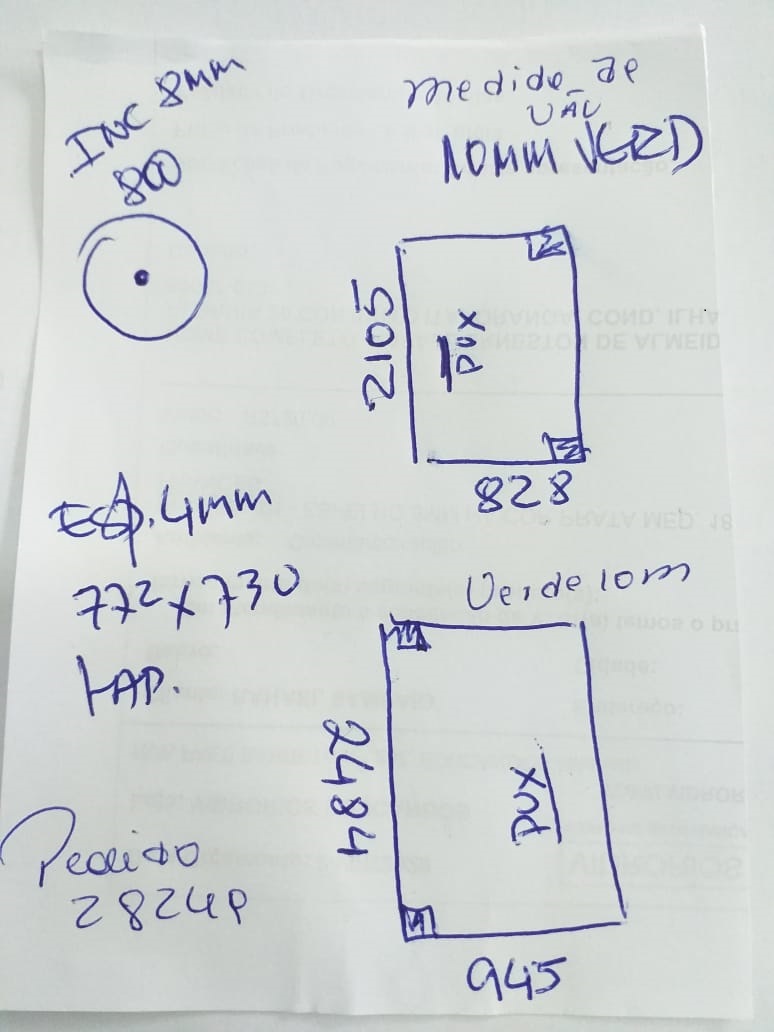 INC 8mm
800
medida de
VÃO
10MM VERD
2105
pux
828
ESP. 4mm
772 x 730
LAP.
Verde 10m
2484
pux
945
Pedido